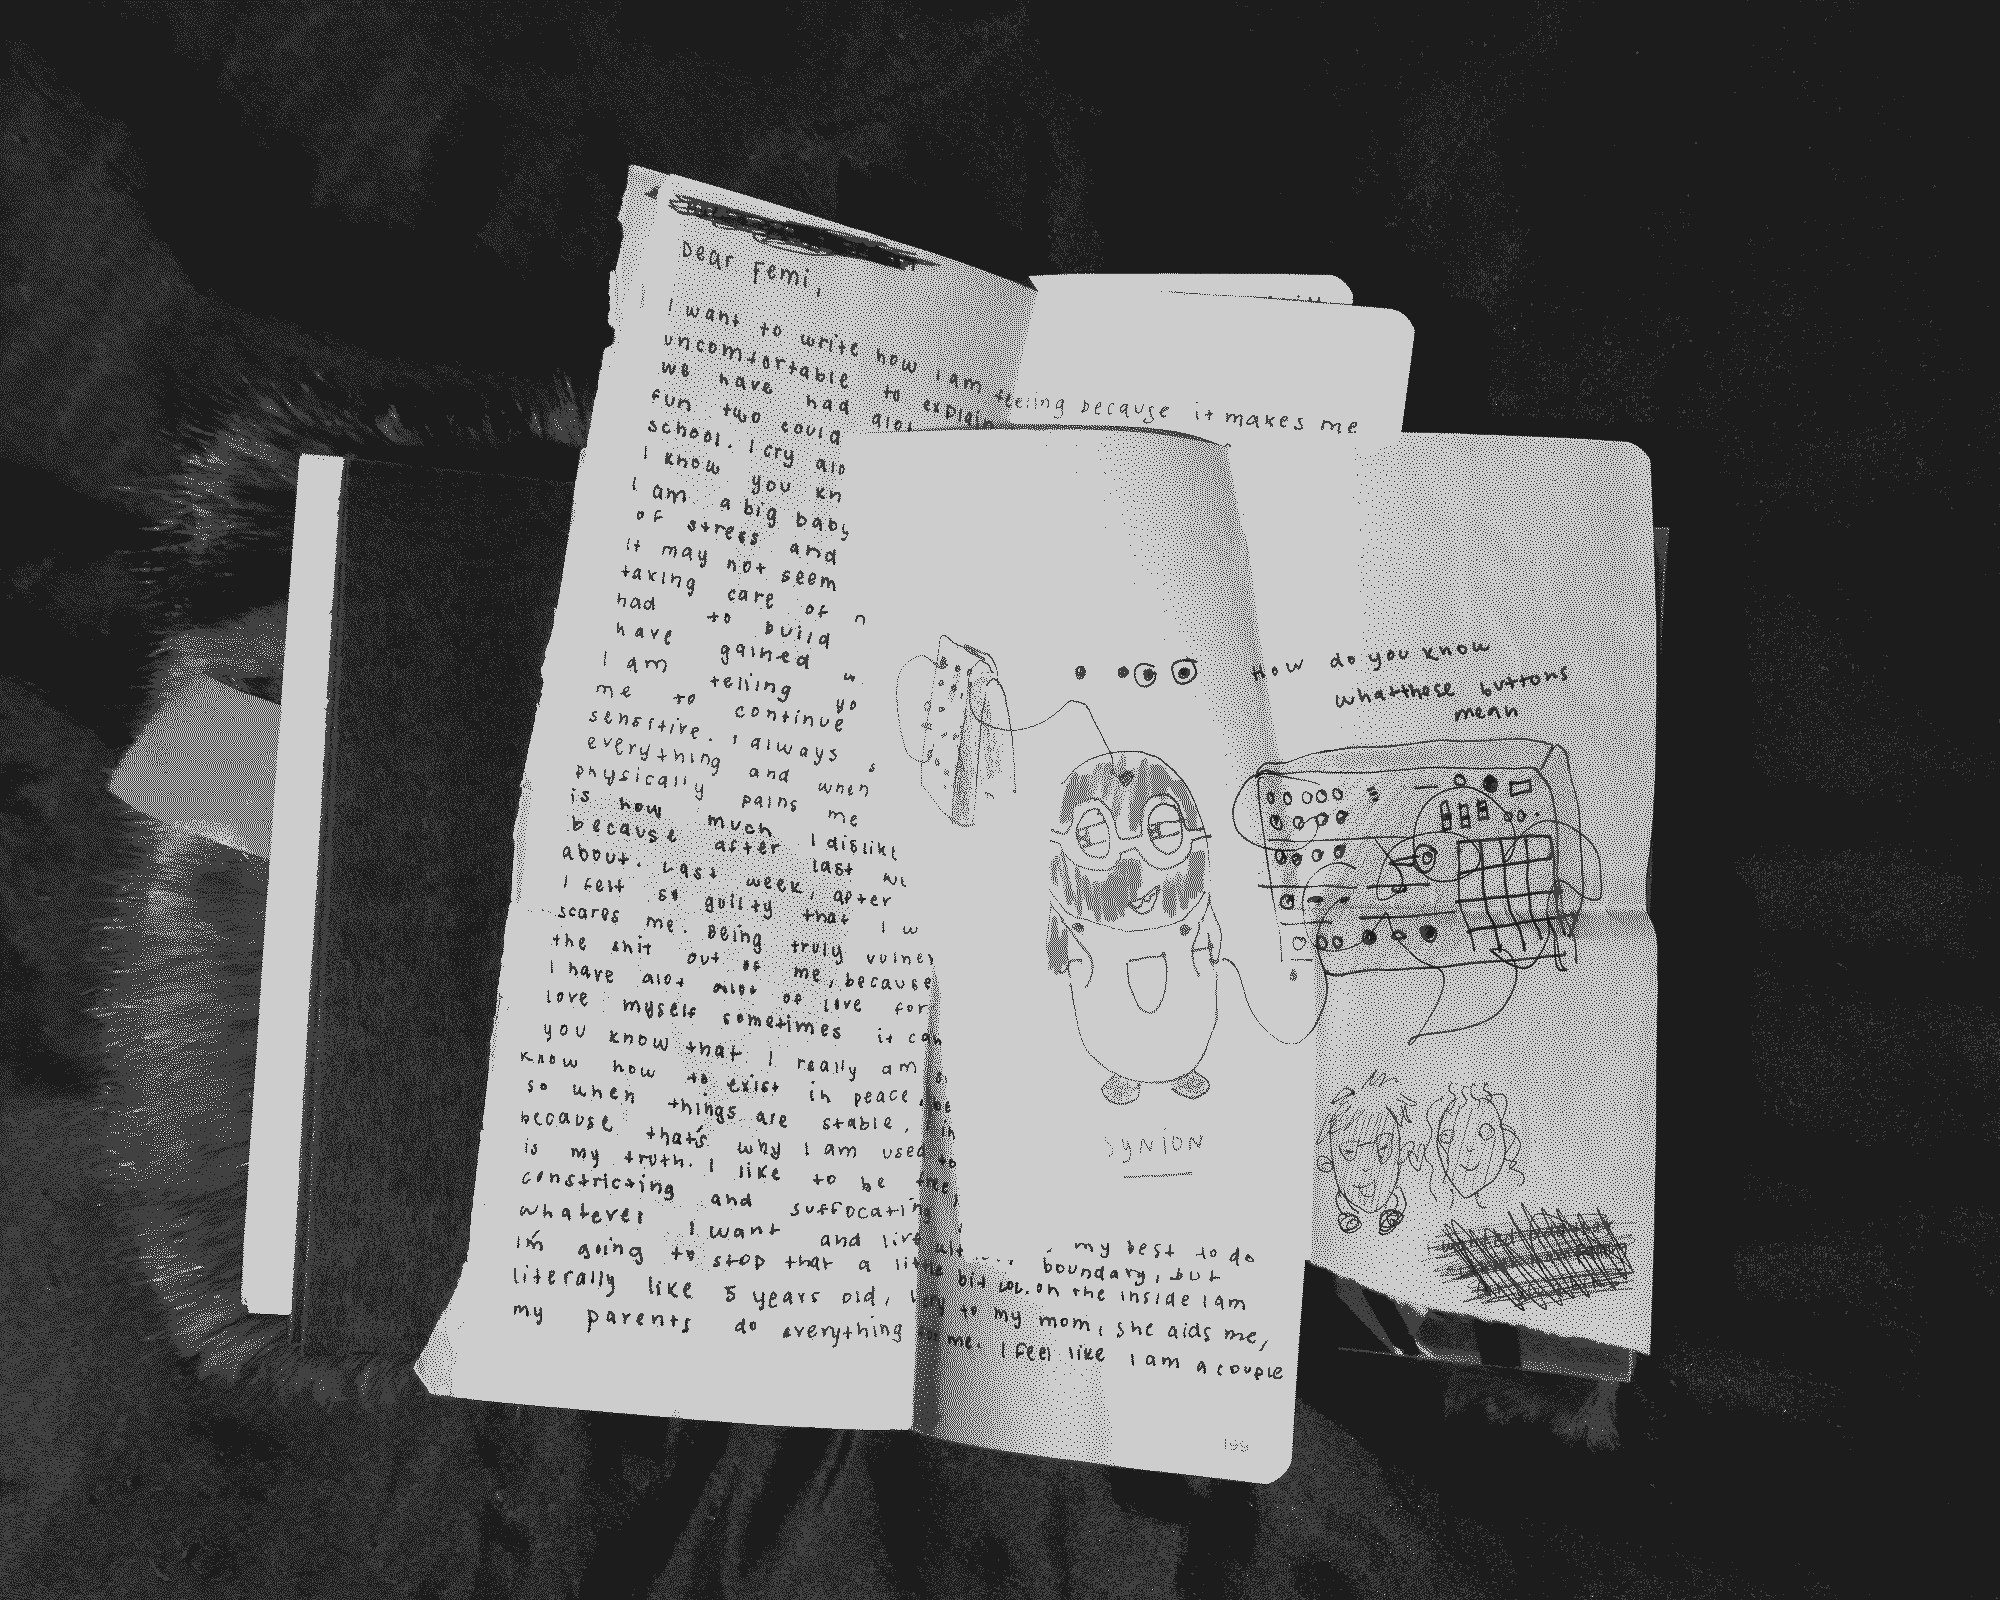 Dear Femi,
I want to write how I am feeling because it makes me
uncomfortable to explain
we have had alot
fun two could
school. I cry alo
I know you kn
I am a big baby
of stress and
it may not seem
taking care of n
had to build
have gained
I am telling yo
me to continue
sensitive. I always s
everything and when
physically pains me
is how much I dislike
because after last we
about. Last week, after
I felt so guilty that I w
scares me. Being truly vulner
the shit out of me, because
I have alot of love for
love myself sometimes it can
you know that I really am
know how to exist in peace, be
so when things are stable, in
because that's why I am used to
is my truth. I like to be free,
constricting and suffocating
whatever I want and live my best to do
I'm going to stop that a little bit boundary, but
literally like 5 years old, on the inside I am
to my mom, she aids me,
my parents do everything for me. I feel like I am a couple
199
SYNION
How do you know
what those buttons
mean